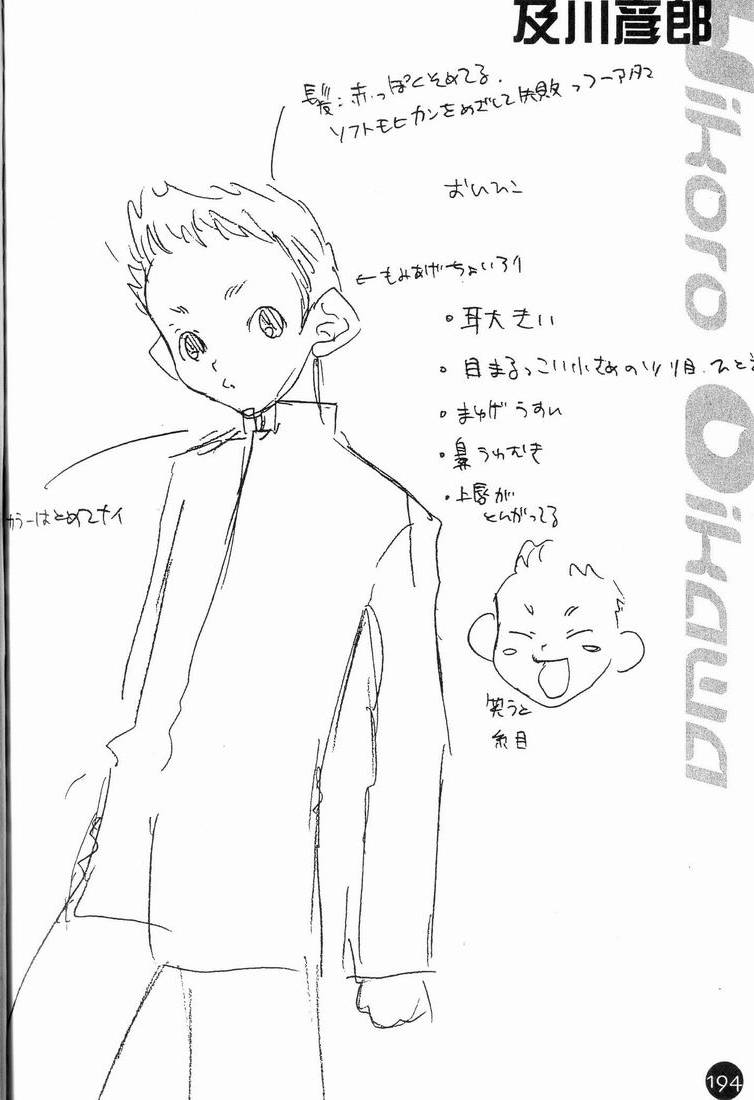 及川彦郎
Hikoro Oikawa
髪：赤っぽくそめてる。
ソフトモヒカンをめざして失敗 っつーアタマ
おいひこ
←もみあげちょいろり
・耳大きい
・目まるっこい小さめのツリ目．ひと
・まゆげうすい
・鼻うわむき
・上唇が
とんがってる
カラーはとめてナイ
笑うと
糸目
194